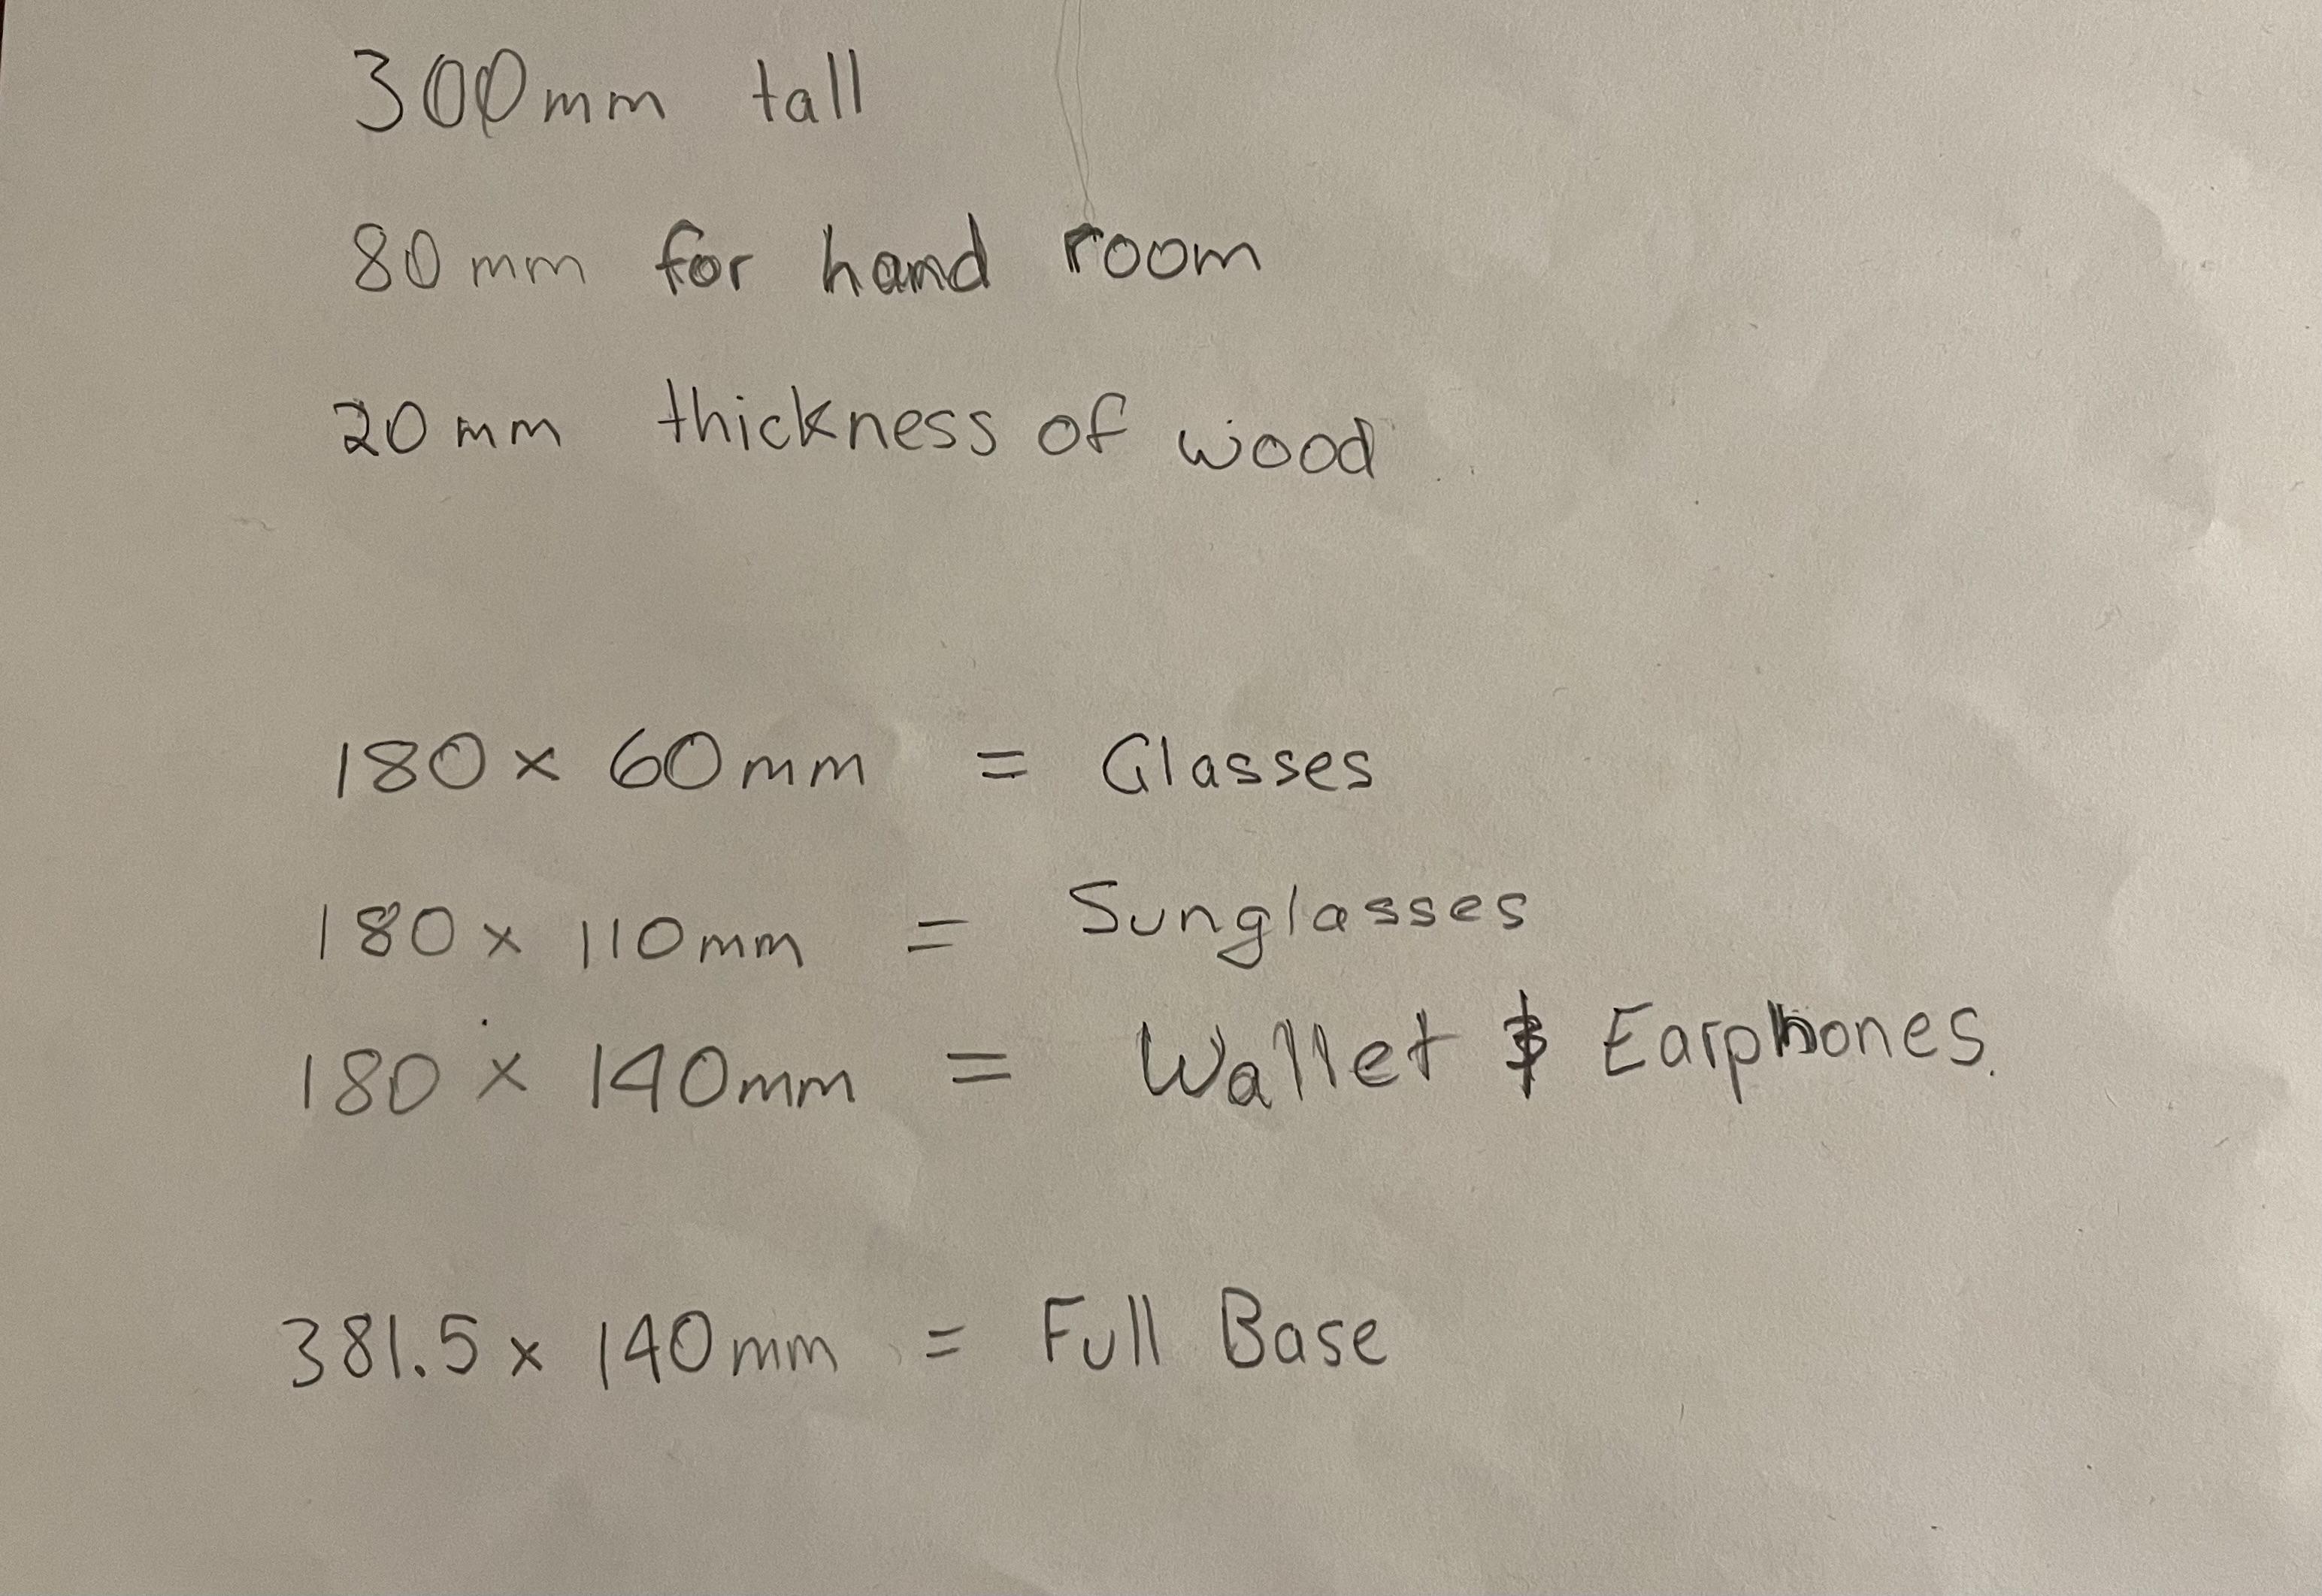 300mm tall
80mm for hand room
20mm thickness of wood
180 x 60mm = Glasses
180 x 110mm = Sunglasses
180 x 140mm = Wallet & Earphones.
381.5 x 140mm = Full Base